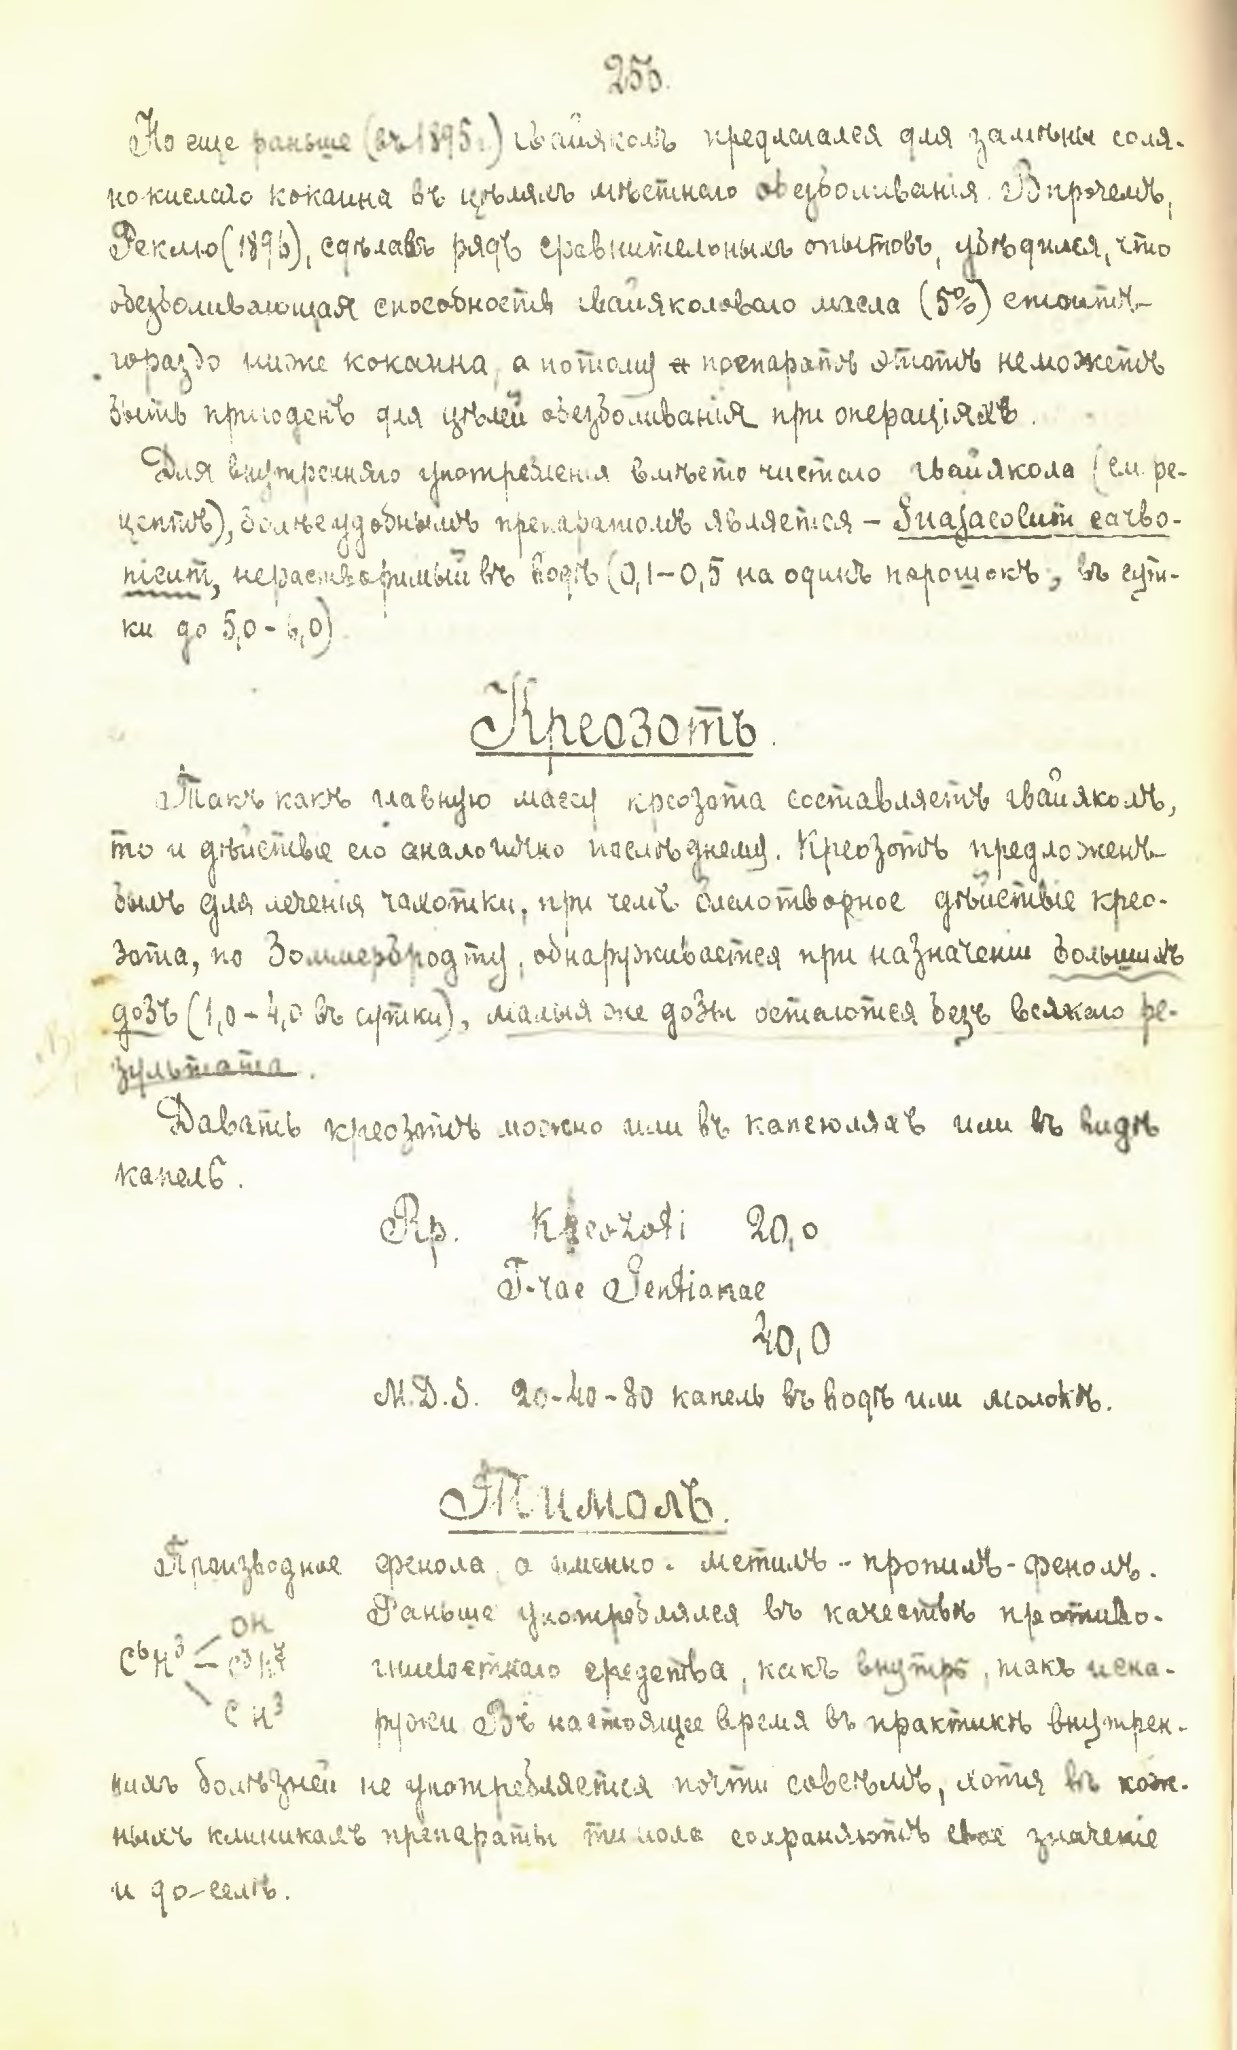 256.
Но еще раньше (въ 1895 г.) гвайяколъ предлагался для замѣны соля-
нокислаго кокаина въ цѣляхъ мѣстнаго обезболиванія. Впрочемъ,
Реклю (1896), сдѣлавъ рядъ сравнительныхъ опытовъ, убѣдился, что
обезболивающая способность гвайяколоваго масла (5%) стоитъ
гораздо ниже кокаина, а потому и препаратъ этотъ неможетъ
быть пригоденъ для цѣлей обезболиванія при операціяхъ.
Для внутренняго употребленія вмѣсто чистаго гвайякола (см. ре-
цептъ), болѣе удобнымъ препаратомъ является – Guajacolum carbo-
nicum, нерастворимый въ водѣ (0,1–0,5 на одинъ порошокъ, въ сут-
ки до 5,0–6,0)
Креозотъ.
Такъ какъ главную массу креозота составляетъ гвайяколъ,
то и дѣйствіе его аналогично послѣднему. Креозотъ предложенъ
былъ для леченія чахотки, при чемъ благотворное дѣйствіе крео-
зота, по Зоммербродту, обнаруживается при назначеніи большихъ
дозъ (1,0–4,0 въ сутки), малыя же дозы остаются безъ всякаго ре-
зультата.
Давать креозтъ можно или въ капсюляхъ или въ видѣ
капель.
Rp. Kreozoti 20,0
T-rae Gentianae
40,0
M.D.S. 20–40–80 капель въ водѣ или молокѣ.
Тимолъ.
Производное фенола, а именно - метилъ-пропилъ-фенолъ.
Раньше употреблялся въ качествѣ противо-
OH
C6H3 – C3H7
гнилостнаго средства, какъ внутрь, такъ и сна-
CH3
ружи Въ настоящее время въ практикѣ внутрен-
нихъ болѣзней не употребляется почти совсѣмъ, хотя въ кож-
ныхъ клиникахъ препараты тимола сохраняютъ свое значеніе
и до-селѣ.